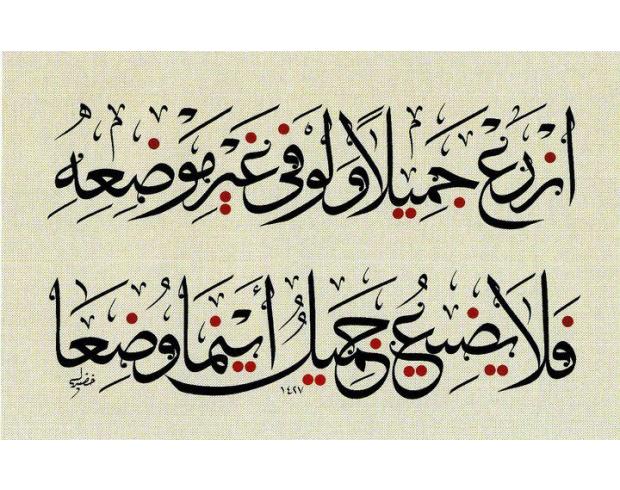 ازْرَعْ جَمِيلاً وَلَوْ فِي غَيْرِ مَوْضِعِهِ
فَلَا يَضِيعُ جَمِيلٌ أَيْنَمَا وُضِعَا
١٤٢٧